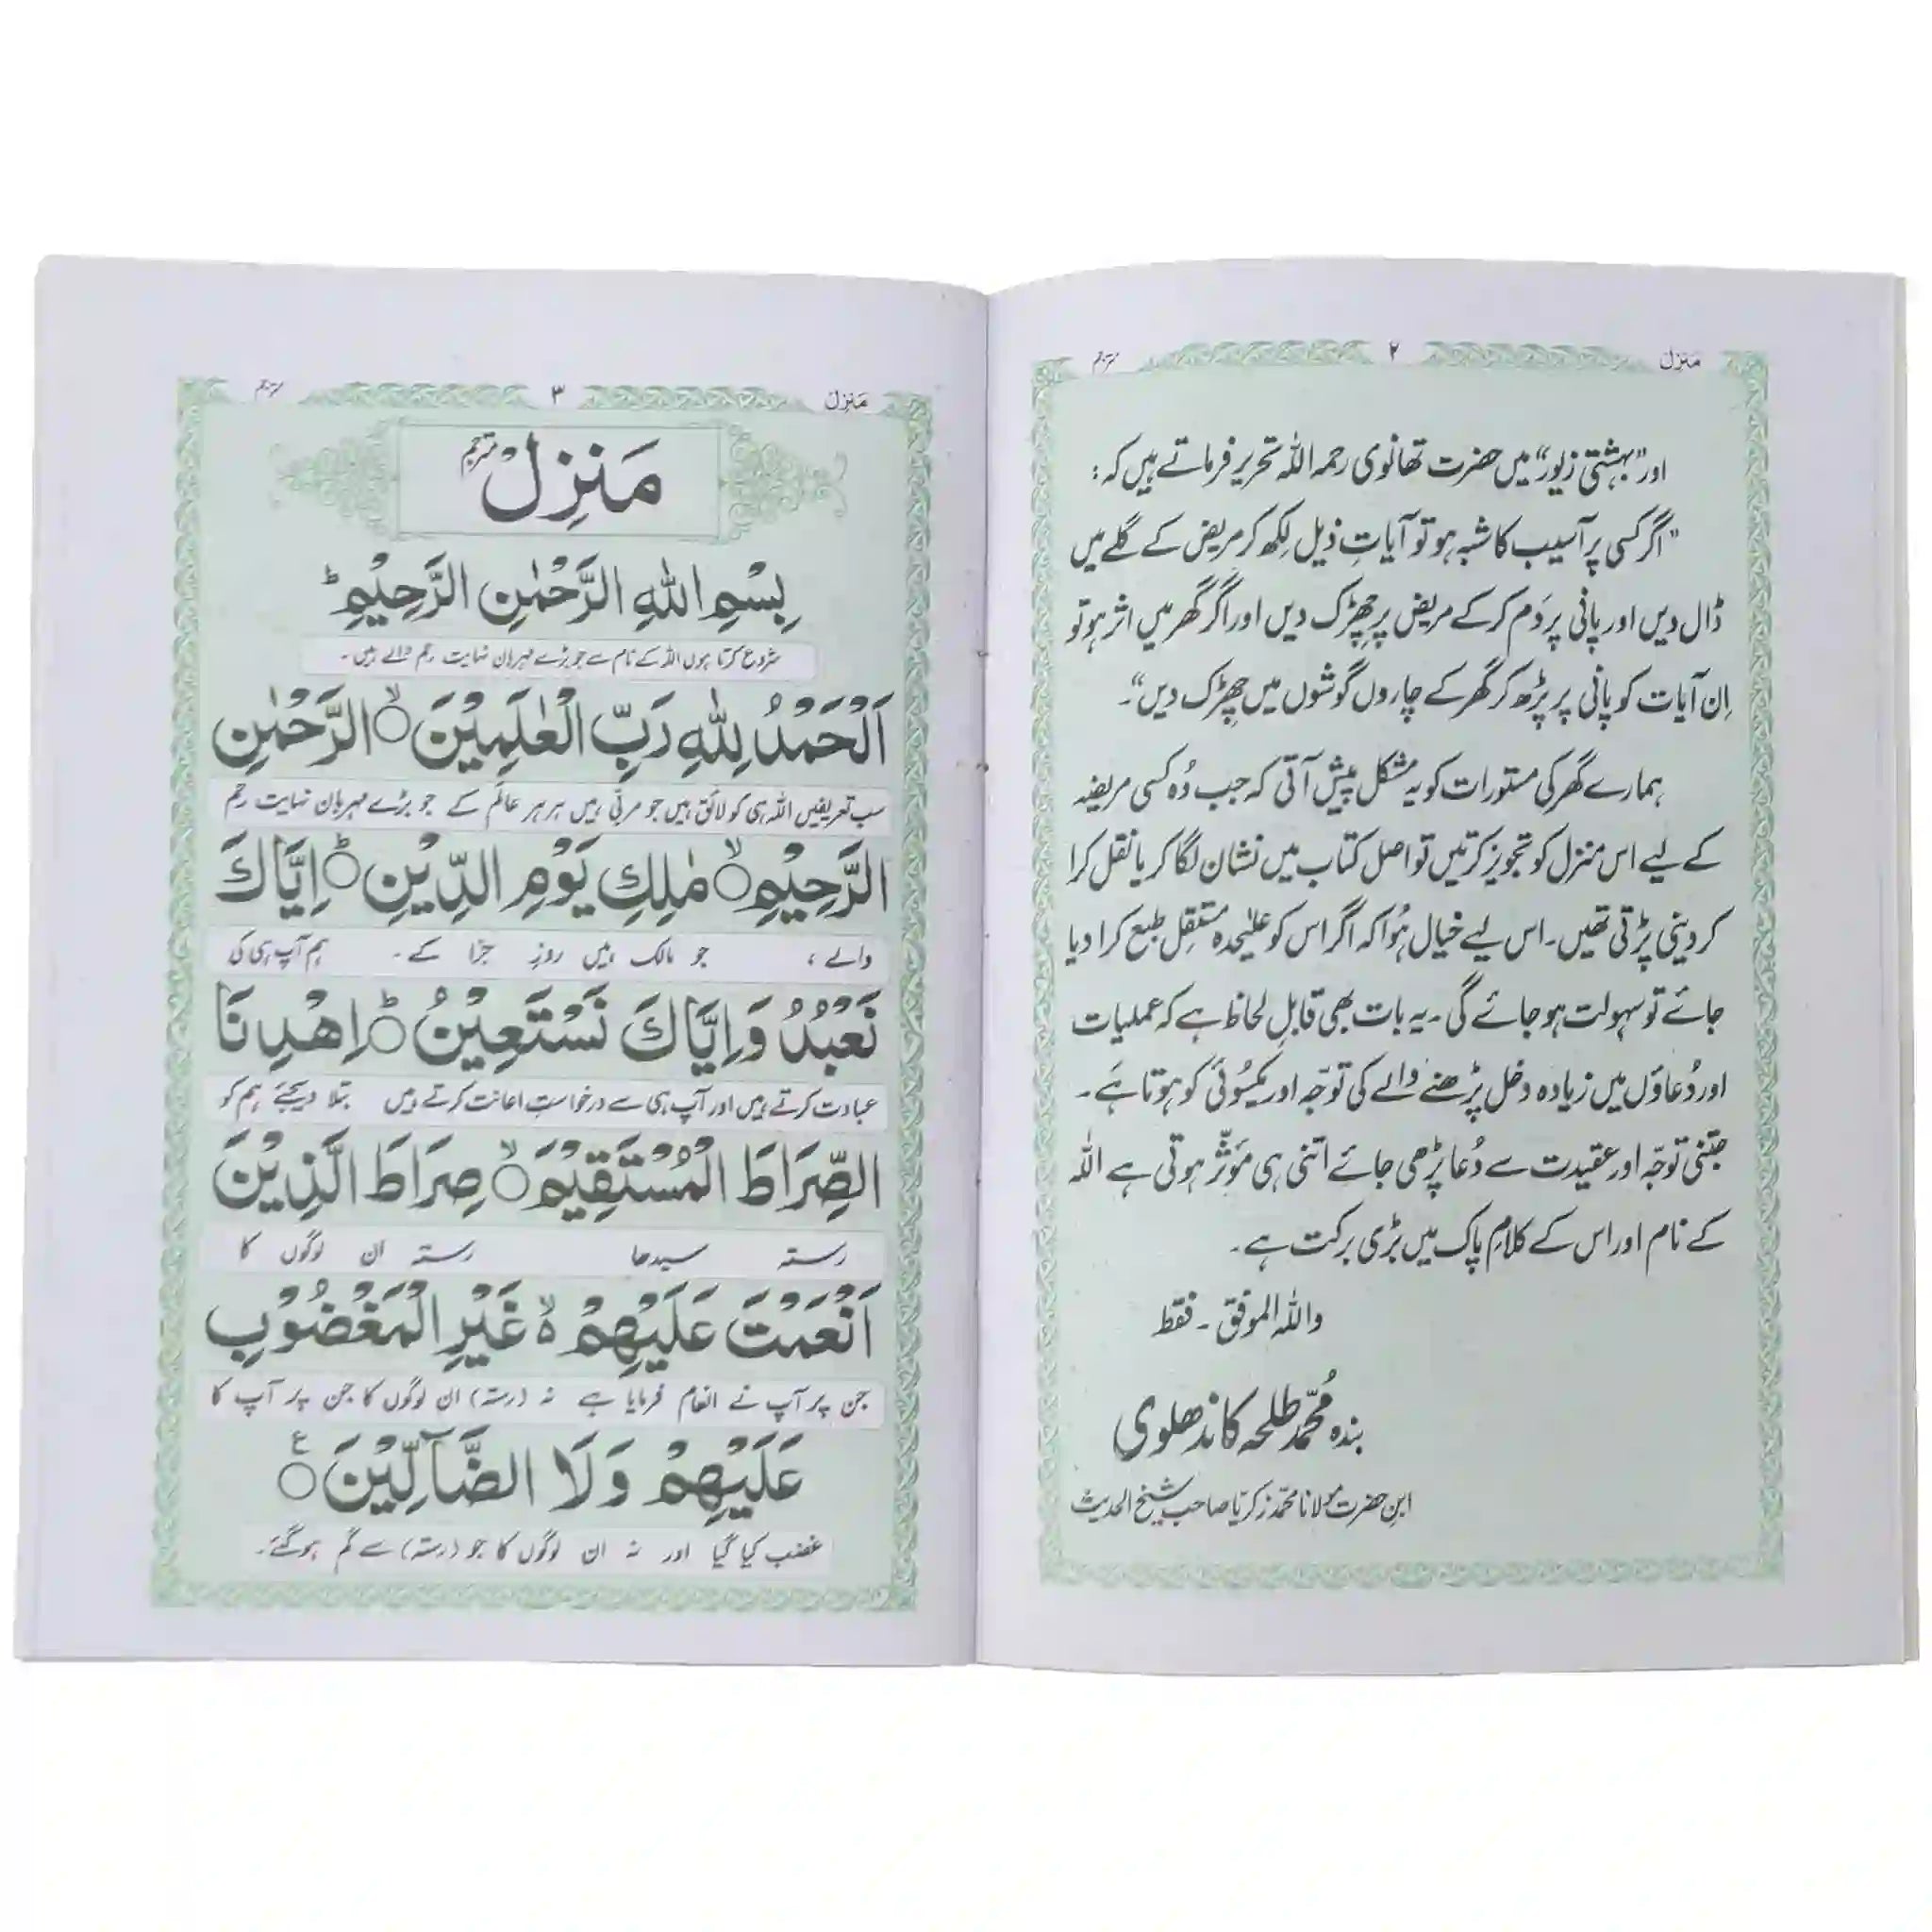 منزل ۲ مترجم
اور "بہشتی زیور" میں حضرت تھانوی رحمہ اللہ تحریر فرماتے ہیں کہ :
"اگر کسی پر آسیب کا شبہ ہو تو آیاتِ ذیل لِکھ کر مریض کے گلے میں
ڈال دیں اور پانی پر دَم کر کے مریض پر چھِڑک دیں اور اگر گھر میں اثر ہو تو
اِن آیات کو پانی پر پڑھ کر گھر کے چاروں گوشوں میں چھِڑک دیں"۔
ہمارے گھر کی مستورات کو یہ مشکل پیش آتی کہ جب وُہ کسی مریضہ
کے لیے اس منزل کو تجویز کرتیں تو اصل کتاب میں نشان لگا کر یا نقل کرا
کر دینی پڑتی تھیں۔ اس لیے خیال ہُوا کہ اگر اس کو علیٰحدہ مستقِل طبع کرا دیا
جائے تو سہولت ہو جائے گی۔ یہ بات بھی قابلِ لحاظ ہے کہ عملیات
اور دُعاؤں میں زیادہ دخل پڑھنے والے کی توجّہ اور یکسُوئی کو ہوتا ہَے۔
جتنی توجّہ اور عقیدت سے دُعا پڑھی جائے اتنی ہی مؤثّر ہوتی ہے اللہ
کے نام اور اس کے کلامِ پاک میں بڑی برکت ہے۔
واللہ الموفق۔ فقط
بندہ مُحمّد طلحہ کاندھلوی
ابنِ حضرت مولانا محمّد زکریّا صاحب شیخ الحدیث
منزل ۳ مترجم
مَنزِلْ مترجم
بِسْمِ اللهِ الرَّحْمٰنِ الرَّحِيْمِ ؕ
شروع کرتا ہوں اللہ کے نام سے جو بڑے مہربان نہایت رحم والے ہیں۔
اَلْحَمْدُ لِلّٰهِ رَبِّ الْعٰلَمِيْنَ ۙ○ الرَّحْمٰنِ
سب تعریفیں اللہ ہی کو لائق ہیں جو مربّی ہیں ہر ہر عالَم کے جو بڑے مہربان نہایت رحم
الرَّحِيْمِ ۙ○ مٰلِكِ يَوْمِ الدِّيْنِ ؕ○ اِيَّاكَ
والے ، جو مالک ہیں روزِ جزا کے۔ ہم آپ ہی کی
نَعْبُدُ وَاِيَّاكَ نَسْتَعِيْنُ ؕ○ اِهْدِنَا
عبادت کرتے ہیں اور آپ ہی سے درخواستِ اعانت کرتے ہیں بتلا دیجئے ہم کو
الصِّرَاطَ الْمُسْتَقِيْمَ ۙ○ صِرَاطَ الَّذِيْنَ
رستہ سیدھا رستہ ان لوگوں کا
اَنْعَمْتَ عَلَيْهِمْ ۙ۬ غَيْرِ الْمَغْضُوْبِ
جن پر آپ نے انعام فرمایا ہے نہ (رستہ) ان لوگوں کا جن پر آپ کا
عَلَيْهِمْ وَلَا الضَّآلِّيْنَ ○ع
غضب کیا گیا اور نہ ان لوگوں کا جو (رستہ) سے گم ہوگئے۔